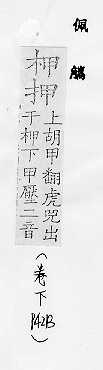 佩觿
柙押
上胡甲翻虎兕出
于柙下甲壓二音
(卷下
P42B)